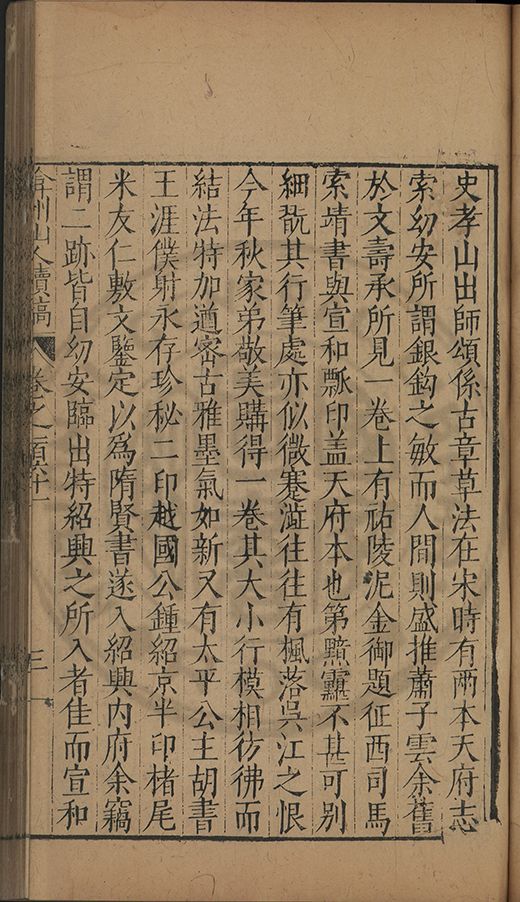 史孝山出師頌係古章草法在宋時有兩本天府志
索幼安所謂銀鈎之敏而人間則盛推蕭子雲余舊
於文壽承所見一卷上有祐陵泥金御題征西司馬
索靖書與宣和瓢印盖天府本也第黯靆不甚可別
細翫其行筆處亦似微蹇澁往往有楓落吳江之恨
今年秋家弟敬美購得一卷其大小行模相彷彿而
結法特加遒密古雅墨氣如新又有太平公主胡書
王涯僕射永存珍秘二印越國公鍾紹京半印楮尾
米友仁敷文鑒定以爲隋賢書遂入紹興內府余竊
謂二跡皆自幼安臨出特紹興之所入者佳而宣和
弇州山人續稿 卷之一百六十一 三